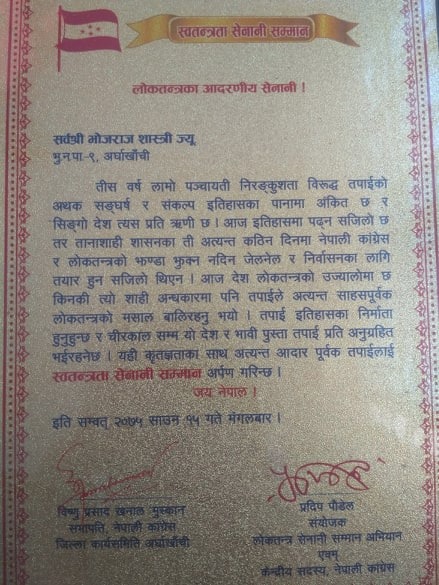 स्वतन्त्रता सेनानी सम्मान
लोकतन्त्रका आदरणीय सेनानी !
सर्वश्री भोजराज शास्त्री ज्यू
भु.न.पा-९, अर्घाखाँची
तीस वर्ष लामो पञ्चायती निरङ्कुशता विरूद्ध तपाईको
अथक सङ्घर्ष र संकल्प इतिहासका पानामा अंकित छ र
सिङ्गो देश त्यस प्रति ऋणी छ । आज इतिहासमा पढ्न सजिलो छ
तर तानाशाही शासनका ती अत्यन्त कठिन दिनमा नेपाली कांग्रेस
र लोकतन्त्रको झण्डा झुक्न नदिन जेलनेल र निर्वासनका लागि
तयार हुन सजिलो थिएन । आज देश लोकतन्त्रको उज्यालोमा छ
किनकी त्यो शाही अन्धकारमा पनि तपाईले अत्यन्त साहसपूर्वक
लोकतन्त्रको मसाल बालिरहनु भयो । तपाई इतिहासका निर्माता
हुनुहुन्छ र चीरकाल सम्म यो देश र भावी पुस्ता तपाई प्रति अनुग्रहित
भईरहनेछ । यही कृतज्ञताका साथ अत्यन्त आदार पूर्वक तपाईलाई
स्वतन्त्रता सेनानी सम्मान अर्पण गरिन्छ ।
जय नेपाल !
इति सम्वत् २०७५ साउन १५ गते मंगलबार ।
विष्णु प्रसाद खनाल मुस्कान
सभापति, नेपाली कांग्रेस
जिल्ला कार्यसमिति अर्घाखाँची
प्रदिप पौडेल
संयोजक
लोकतन्त्र सेनानी सम्मान अभियान
एवम्
केन्द्रीय सदस्य, नेपाली कांग्रेस